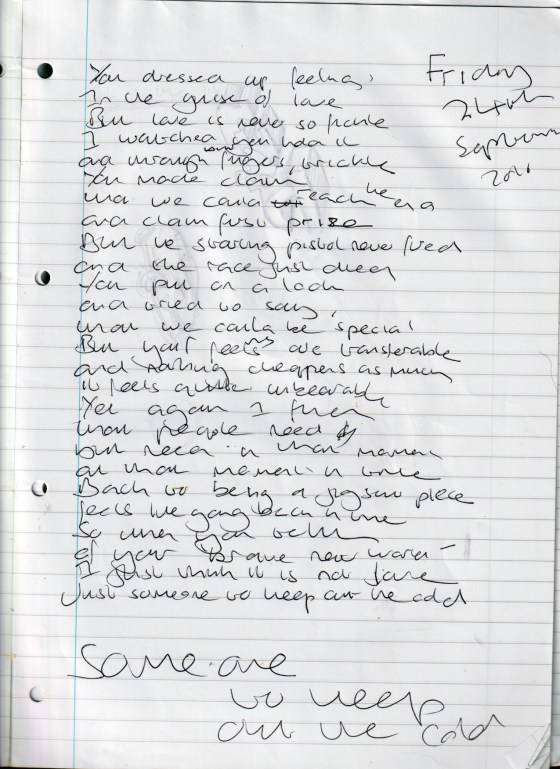 You dressed up feelings
In the guise of love
But love is never so fickle
I watched you hold it
and through fingers, trickle
You made claim
that we could reach the end
and claim first prize
But the starting pistol never fired
and the race just died
You put on a look
and tried to say,
that we could be special
But your feelings are transferable
and nothing cheapens as much
it feels quite unbearable
Yet again I find
that people need
but need in that moment
at that moment in time
Back to being a jigsaw piece
feels like going back in time
So when you tell me
of your 'brave new world'
I just think it is not love
Just someone to keep out the cold
Friday
24th
September
Someone
to keep
out the cold